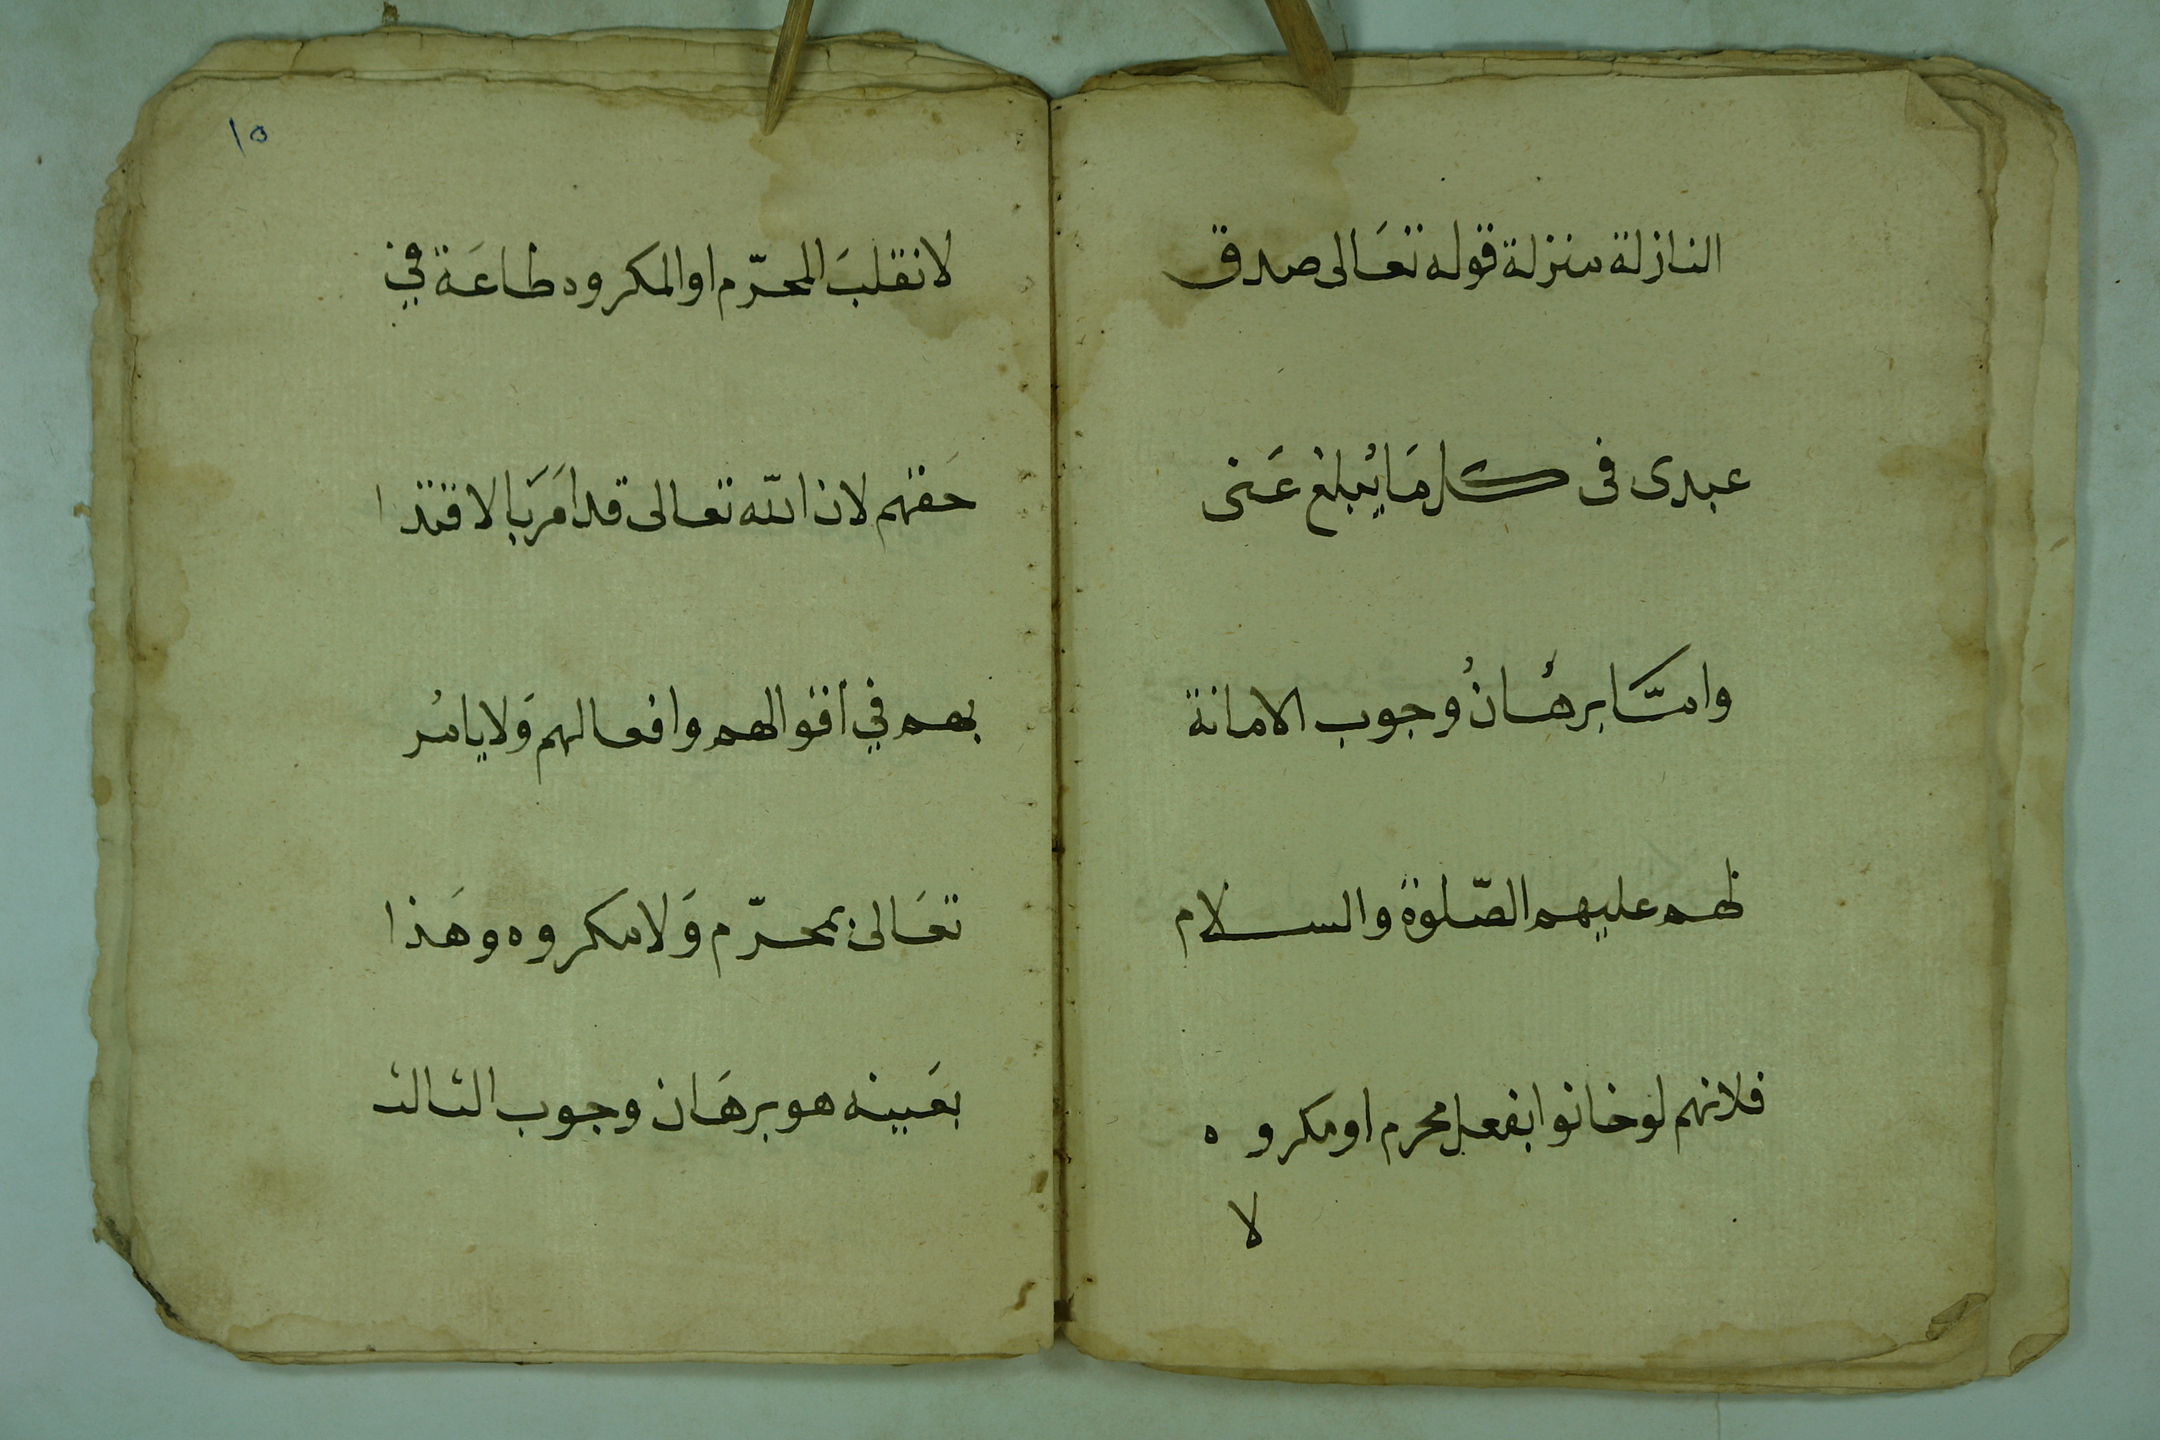 النازلة منزلة قوله تعَالى صدق
عبدى فى كل مَا يُبلغ عَنى
وامّا برهُانُ وجوب الامانة
لهم عليهم الصّلوة والسلام
فلانهم لوخانوا بفعل محرم اومكروه
لا
١٥
لانقلبَ المحرّم اوالمكروه طاعَة في
حَقهم لان الله تعالى قد امَرَ بالاقتدا
بهم في اقوالهم وافعالهم وَلا يامُر
تعَالى بمحرّم وَلامكروه وهَذا
بعَينه هو برهَان وجوب الثالث